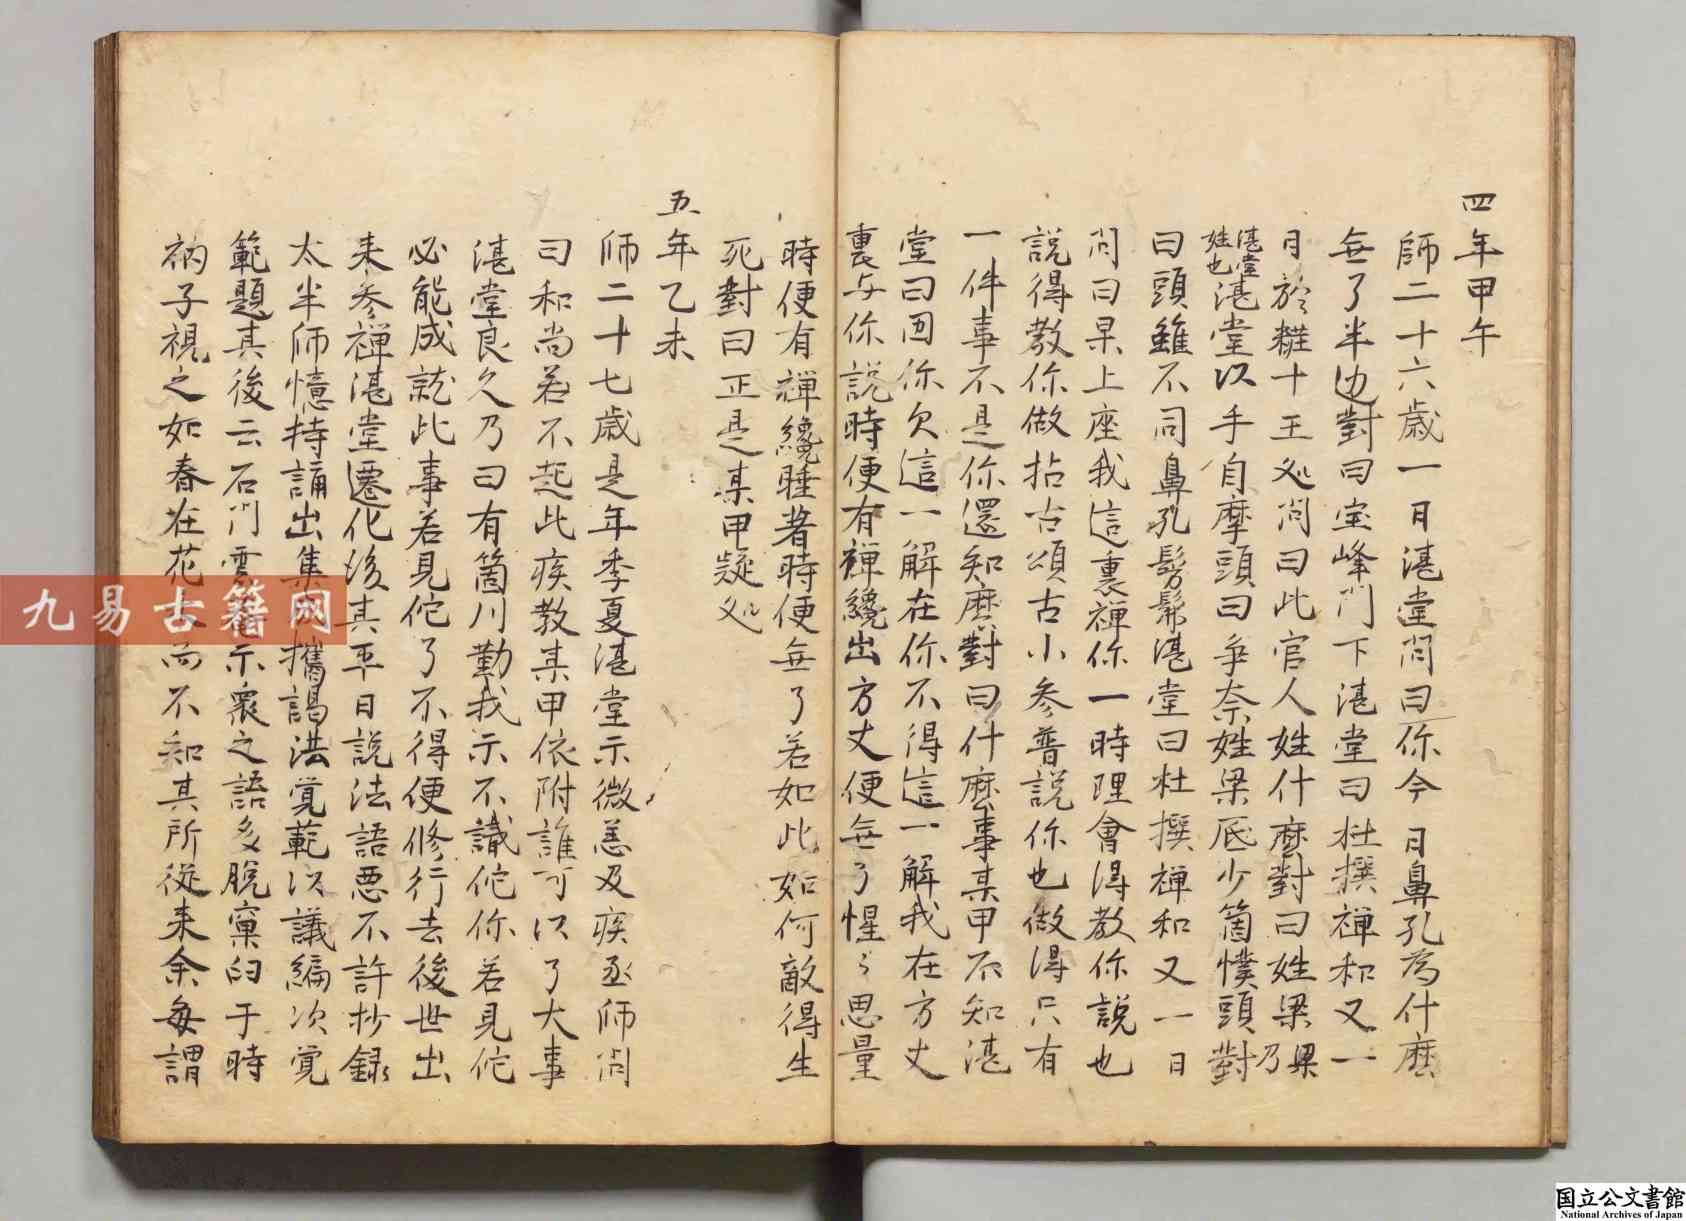 四年甲午
師二十六歳一日湛堂問曰你今日鼻孔為什麽
無了半边對曰宝峰門下湛堂曰杜撰禅和又一
日於粧十王処問曰此官人姓什麽對曰姓梁乃梁
湛堂
姓也
湛堂以手自摩頭曰争奈姓梁底少箇幞頭對
曰頭雖不同鼻孔髣髴湛堂曰杜撰禅和又一日
問曰杲上座我這裏禅你一時理會得教你説也
説得教你做拈古頌古小参普説你也做得只有
一件事不是你還知麽對曰什麽事某甲不知湛
堂曰囙你欠這一解在你不得這一解我在方丈
裏与你説時便有禅纔出方丈便無了惺〻思量
時便有禅纔睡著時便無了若如此如何敵得生
死對曰正是某甲疑処
五年乙未
師二十七歳是年季夏湛堂示微恙及疾亟師問
曰和尚若不起此疾教某甲依附誰可以了大事
湛堂良久乃曰有箇川勤我示不識佗你若見佗
必能成就此事若見佗了不得便修行去後世出
来参禅湛堂遷化後其平日説法語悪不許抄録
太半師憶持誦出集 携謁洪覚範以議編次覚
範題其後云石門雲 示衆之語多脱窠臼于時
衲子視之如春在花 而不知其所従来余毎謂
九易古籍网
国立公文書館
National Archives of Japan